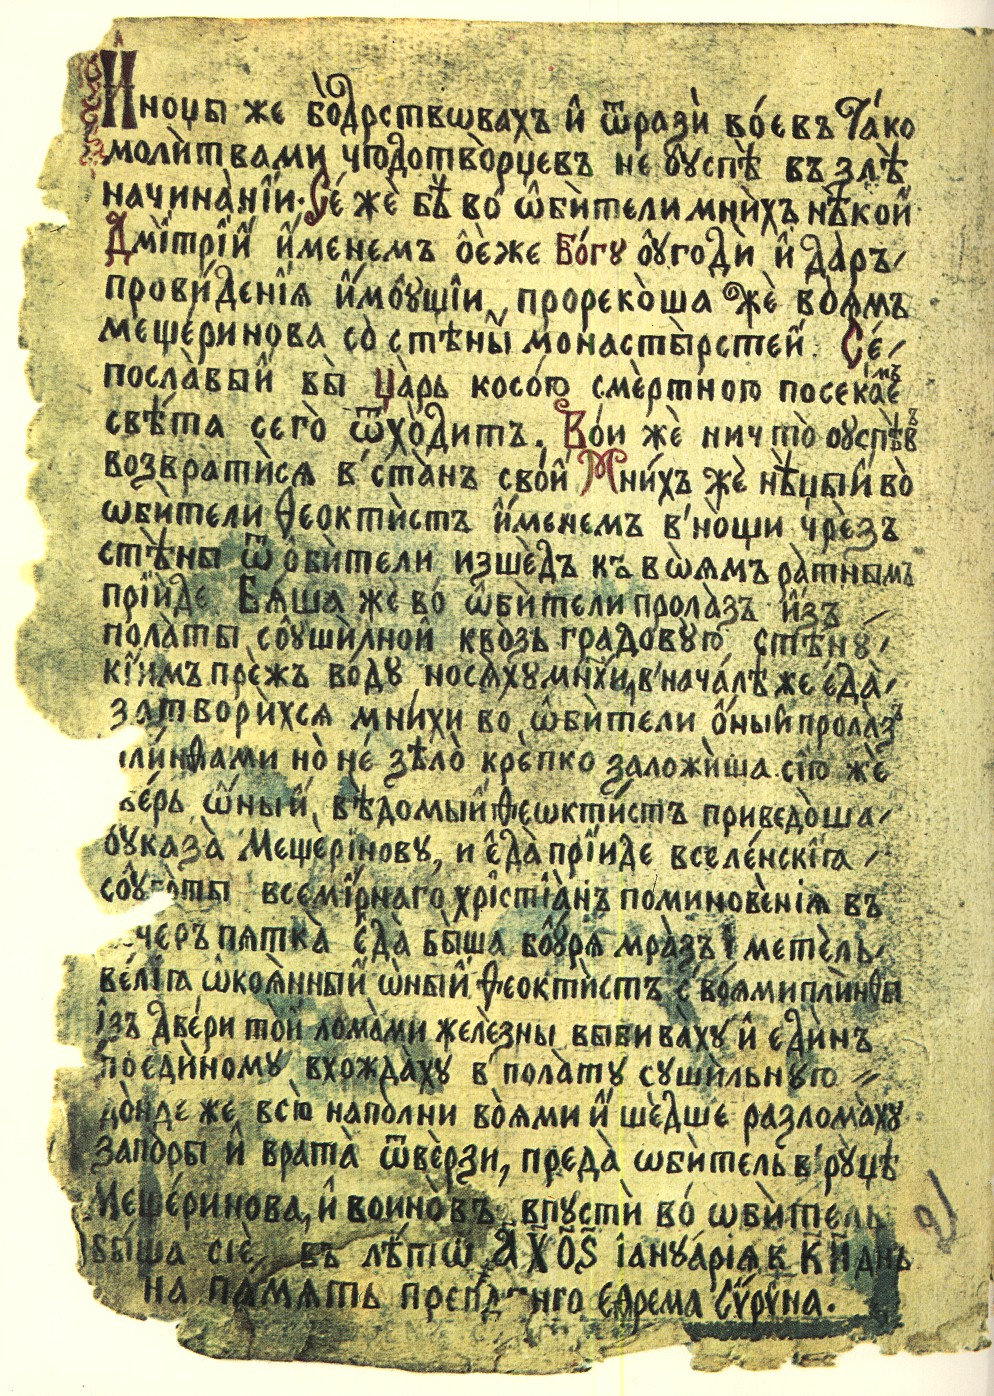 И нощы же бо́дрствѡвахъ и҆ ѿрази̇̀ во́евъ Та́ко
моли̇̀твами чюдотво̀рцевъ не ѹспѣ̀ въ злѣ̀
начина̀нїи. Се́ же бѣ̀ во ѡ҆би̇̀тели мни̇̀хъ нѣ̀кой
Дми̇́трїй и҆́менемъ о҆́еже Бо́гу ѹгоди̇̀ и҆ да́ръ
прови́денїя и҆мѹщїи, пророко̀ша жѐ во̀ямъ
меще́ринова со стѣны̀ монасты̀рстей. Се́
посла̀вый вы̀ ца̀рь косо́ю смѐртною посека́емъ
свѣ́та сего̀ ѿхо̀дитъ. Во́и жѐ ничто̀ ѹспѣ̀въ
возврати̇̀ся в̾ ста̀нъ сво́й Мни́хъ жѐ нѣ̀цый во̀
ѡби̇̀тели Ѳеокти̇̀стъ и҆́менемъ в̾ но̀щи чрѐзъ
стѣ̀ны ѿ ѻби̇̀тели изшѐдъ къ вѡ̀ямъ ра̀тнымъ
прїи̇́де Бя́ша же во́ ѡ҆би̇̀тели прола̀зъ и҆́зъ
пола̀ты сѹши̇̀лной квозь градовую стѣ̀ну
кїимъ пре́жъ во̀ду носяху мнїхи, в̾ нача́лѣ же е҆да̀
затвори̇̀хся мни́хи во ѡби̇̀тели о҆́ный прола̀зъ
лі́нѳами но̀ не́ зѣло̀ крѐпко заложи̇̀ша. сїю жѐ
ве́рь ѡ҆́ный, вѣ̀домый Ѳеѡкти̇́стъ приведо̀ша
ѹказа̀ Меще́рїнову, и е҆да̀ прїи̇́де вселе́нскїга
сѹ боты всемі́рнаго хрїстїа̀нъ помнове̏нїя въ
черъ пятка̀ е҆да̀ бы́ша бѹря мра̀зъ і метѐль
ве́лїга ѡ҆кая́нный ѡ҆ный Ѳеокти̇̀стъ с̾ во́ями плінѳы
ізъ две́ри той лома́ми желѐзны выбива̀ху и҆ еди̇̀нъ
поеди̇̀ному вхожда̀ху в̾ пола̀ту суши̇̀льную
до́нде же всю напо̀лни во̀ями и҆ шѐдше разлома̀ху
запо̀ры и҆ врата̀ ѿвѐрзи, преда̀ ѡби̇̀тель в̾ ру́цѣ
Меще́ринова, и҆ воино̀въ впусти̇̀ во́ ѡби̇̀тель
бы́ша сїѐ въ лѣ̀тѡ ҂АХ҃О҃Ѕ іануа́рія в КИ҃ днь
на па́мять преп нго Ефрема Сирина.